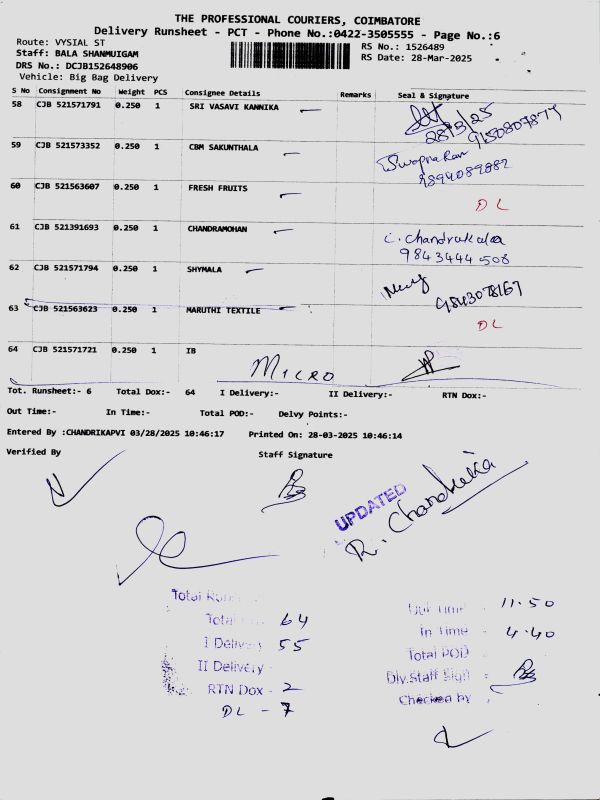 THE PROFESSIONAL COURIERS, COIMBATORE
Delivery Runsheet - PCT - Phone No.:0422-3505555 - Page No.:6
Route: VYSIAL ST
RS No.: 1526489
Staff: BALA SHANMUIGAM
RS Date: 28-Mar-2025
DRS No.: DCJB152648906
Vehicle: Big Bag Delivery
S No Consignment No Weight PCS Consignee Details Remarks Seal & Signature
58 CJB 521571791 0.250 1 SRI VASAVI KANNIKA
28/3/25
9150807877
59 CJB 521573352 0.250 1 CBM SAKUNTHALA
9894089882
60 CJB 521563607 0.250 1 FRESH FRUITS
DL
61 CJB 521391693 0.250 1 CHANDRAMOHAN
C. Chandrakala
9843444508
62 CJB 521571794 0.250 1 SHYMALA
9843078167
63 CJB 521563623 0.250 1 MARUTHI TEXTILE
DL
64 CJB 521571721 0.250 1 IB
MICRO
Tot. Runsheet:- 6 Total Dox:- 64 I Delivery:- II Delivery:- RTN Dox:-
Out Time:- In Time:- Total POD:- Delvy Points:-
Entered By :CHANDRIKAPVI 03/28/2025 10:46:17 Printed On: 28-03-2025 10:46:14
Verified By Staff Signature
UPDATED
R. Chandrika
Total
Out Time - 11.50
Total 64
In Time - 4.40
I Delivery 55
Total POD
II Delivery -
Dlv.Staff Sign
RTN Dox - 2
Checked by
DL - 7